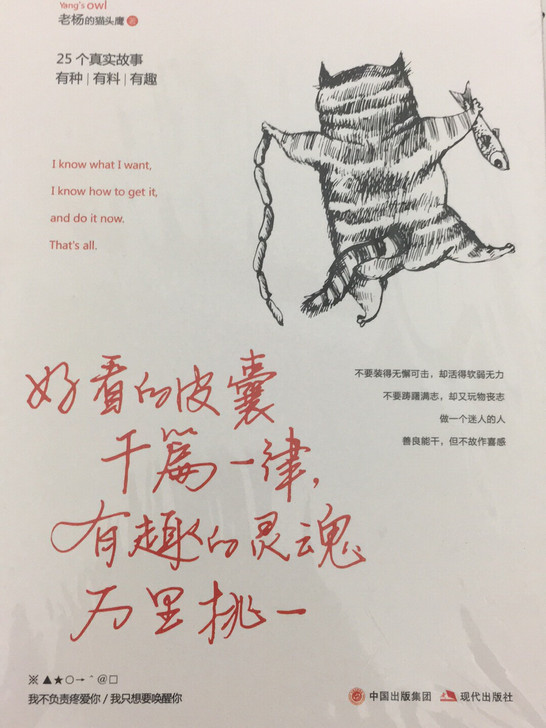 Yang's owl
老杨的猫头鹰 著
25个真实故事
有种|有料|有趣
I know what I want,
I know how to get it,
and do it now.
That's all.
不要装得无懈可击，却活得软弱无力
不要踌躇满志，却又玩物丧志
做一个迷人的人
善良能干，但不故作喜感
好看的皮囊
千篇一律，
有趣的灵魂
万里挑一
※▲★○→＾@□
我不负责疼爱你/我只想要唤醒你
中国出版集团 现代出版社